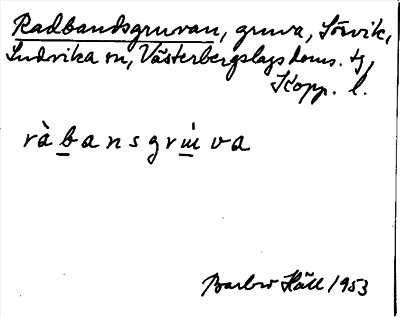 Radbandsgruvan, gruva, Sörvik,
Ludvika sn, Västerbergslags doms. tg,
Kopp. l.
ràbansgrùva
Barbro Häll 1953